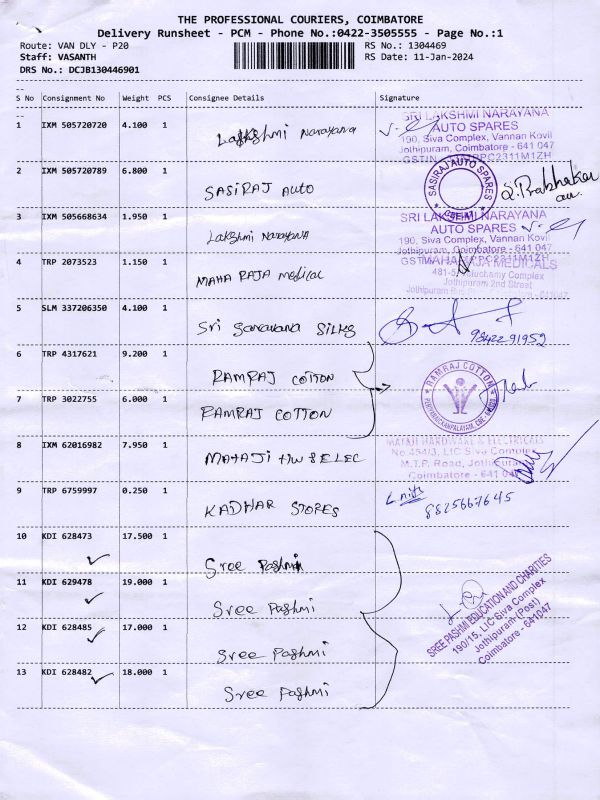 THE PROFESSIONAL COURIERS, COIMBATORE
Delivery Runsheet - PCM - Phone No.:0422-3505555 - Page No.:1
Route: VAN DLY - P20 RS No.: 1304469
Staff: VASANTH RS Date: 11-Jan-2024
DRS No.: DCJB130446901
S No Consignment No Weight PCS Consignee Details Signature
1 IXM 505720720 4.100 1 Lakshmi Narayana
SRI LAKSHMI NARAYANA
AUTO SPARES
190, Siva Complex, Vannan Kovil
Jothipuram, Coimbatore - 641 047
2 IXM 505720789 6.800 1 SASIRAJ AUTO
SASIRAJ AUTO SPARES
R. Prabhakar
3 IXM 505668634 1.950 1 Lakshmi Narayana
SRI LAKSHMI NARAYANA
AUTO SPARES
190, Siva Complex, Vannan Kovil
Jothipuram, Coimbatore - 641 047
4 TRP 2073523 1.150 1 MAHA RAJA medical
MAHARAJA MEDICALS
Jothipuram 2nd Street
5 SLM 337206350 4.100 1 Sri Saravana Silks
9842291952
6 TRP 4317621 9.200 1 RAMRAJ COTTON
RAMRAJ COTTON
7 TRP 3022755 6.000 1 RAMRAJ COTTON
8 IXM 62016982 7.950 1 MATAJI HW & ELEC
MATAJI HARDWARE & ELECTRICALS
No.454/3, LIC Siva Complex
M.T.P. Road, Jothipuram
Coimbatore - 641 047
9 TRP 6759997 0.250 1 KADHAR STORES
8825667645
10 KDI 628473 17.500 1 Sree Pashmi
11 KDI 629478 19.000 1 Sree Pashmi
SREE PASHMI EDUCATION AND CHARITIES
190/15, LIC Siva Complex
Jothipuram (Post)
Coimbatore - 641047
12 KDI 628485 17.000 1 Sree Pashmi
13 KDI 628482 18.000 1 Sree Pashmi